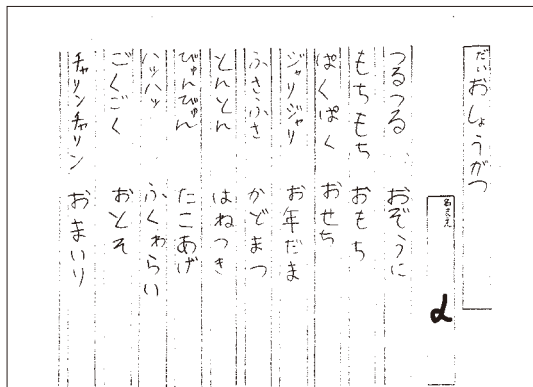 だい おしょうがつ
名まえ d
つるつる おぞうに
もちもち おもち
ぱくぱく おせち
ジャリジャリ お年だま
ふさふさ かどまつ
とんとん はねつき
びゅんびゅん たこあげ
ハッハッ ふくわらい
ごくごく おとそ
チャリンチャリン おまいり